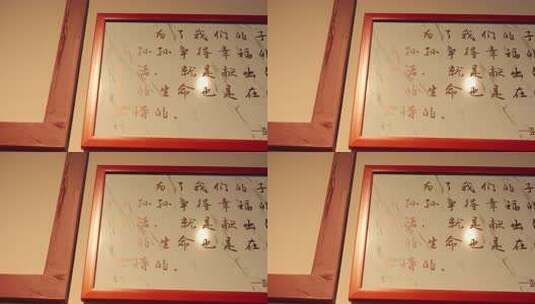 为了我们的子
孙孙争得幸福
活，就是献出
的生命也是在
惜的。
为了我们的子
孙孙争得幸福
活，就是献出
的生命也是在
惜的。
为了我们的子
孙孙争得幸福
活，就是献出
的生命也是在
惜的。
为了我们的子
孙孙争得幸福
活，就是献出
的生命也是在
惜的。